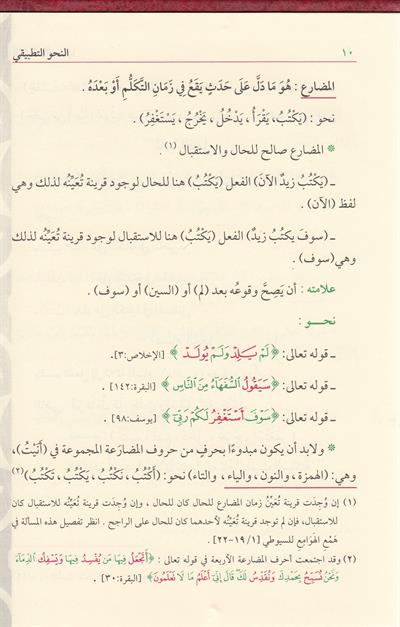 ١٠ النحو التطبيقي
المضارع : هُوَ مَا دَلَّ عَلَى حَدَثٍ يَقَعُ فِي زَمَانِ التَّكَلُّمِ أَوْ بَعْدَهُ .
نحو : (يَكْتُبُ، يَقْرَأُ ، يَدْخُلُ ، يَخْرُجُ ، يَسْتَغْفِرُ) .
* المضارع صالح للحال والاستقبال (١) .
ـ (يَكْتُبُ زيدٌ الآنَ) الفعل (يَكْتُبُ) هنا للحال لوجود قرينة تُعَيِّنُه لذلك وهي
لفظ (الآن) .
ـ (سوفَ يكتبُ زيدٌ) الفعل (يَكْتُبُ) هنا للاستقبال لوجود قرينة تُعَيِّنُه لذلك
وهي(سوف) .
علامته : أن يَصِحَّ وقوعُه بعد (لم) أو (السين) أو (سوف) .
نحــو :
ـ قوله تعالى: ﴿ لَمْ يَلِدْ وَلَمْ يُولَدْ ﴾ [الإخلاص:٣].
ـ قوله تعالى: ﴿ سَيَقُولُ السُّفَهَاءُ مِنَ النَّاسِ ﴾ [البقرة:١٤٢] .
ـ قوله تعالى: ﴿ سَوْفَ أَسْتَغْفِرُ لَكُمْ رَبِّي ﴾ [يوسف:٩٨].
* ولابد أن يكون مبدوءًا بحرفٍ من حروف المضارَعة المجموعة في (أَنَيْتُ)،
وهي: (الهمزة ، والنون ، والياء ، والتاء) نحو: (أَكْتُبُ ، نَكْتُبُ ، يَكْتُبُ ، تَكْتُبُ) (٢)
(١) إن وُجِدَت قرينة تُعَيِّنُ زمان المضارع للحال كان للحال ، وإن وُجِدَت قرينة تُعَيِّنُه للاستقبال كان
للاستقبال، فإن لم توجد قرينة تُعَيِّنُه لأحدهما كان للحال على الراجح . انظر تفصيل هذه المسألة في
هَمْعِ الهَوَامِع للسيوطي (١/ ١٩-٢٢) .
(٢) وقد اجتمعت أحرف المضارعة الأربعة في قوله تعالى : ﴿ أَتَجْعَلُ فِيهَا مَن يُفْسِدُ فِيهَا وَيَسْفِكُ الدِّمَاءَ
وَنَحْنُ نُسَبِّحُ بِحَمْدِكَ وَنُقَدِّسُ لَكَ قَالَ إِنِّي أَعْلَمُ مَا لَا تَعْلَمُونَ﴾ [البقرة:٣٠] .